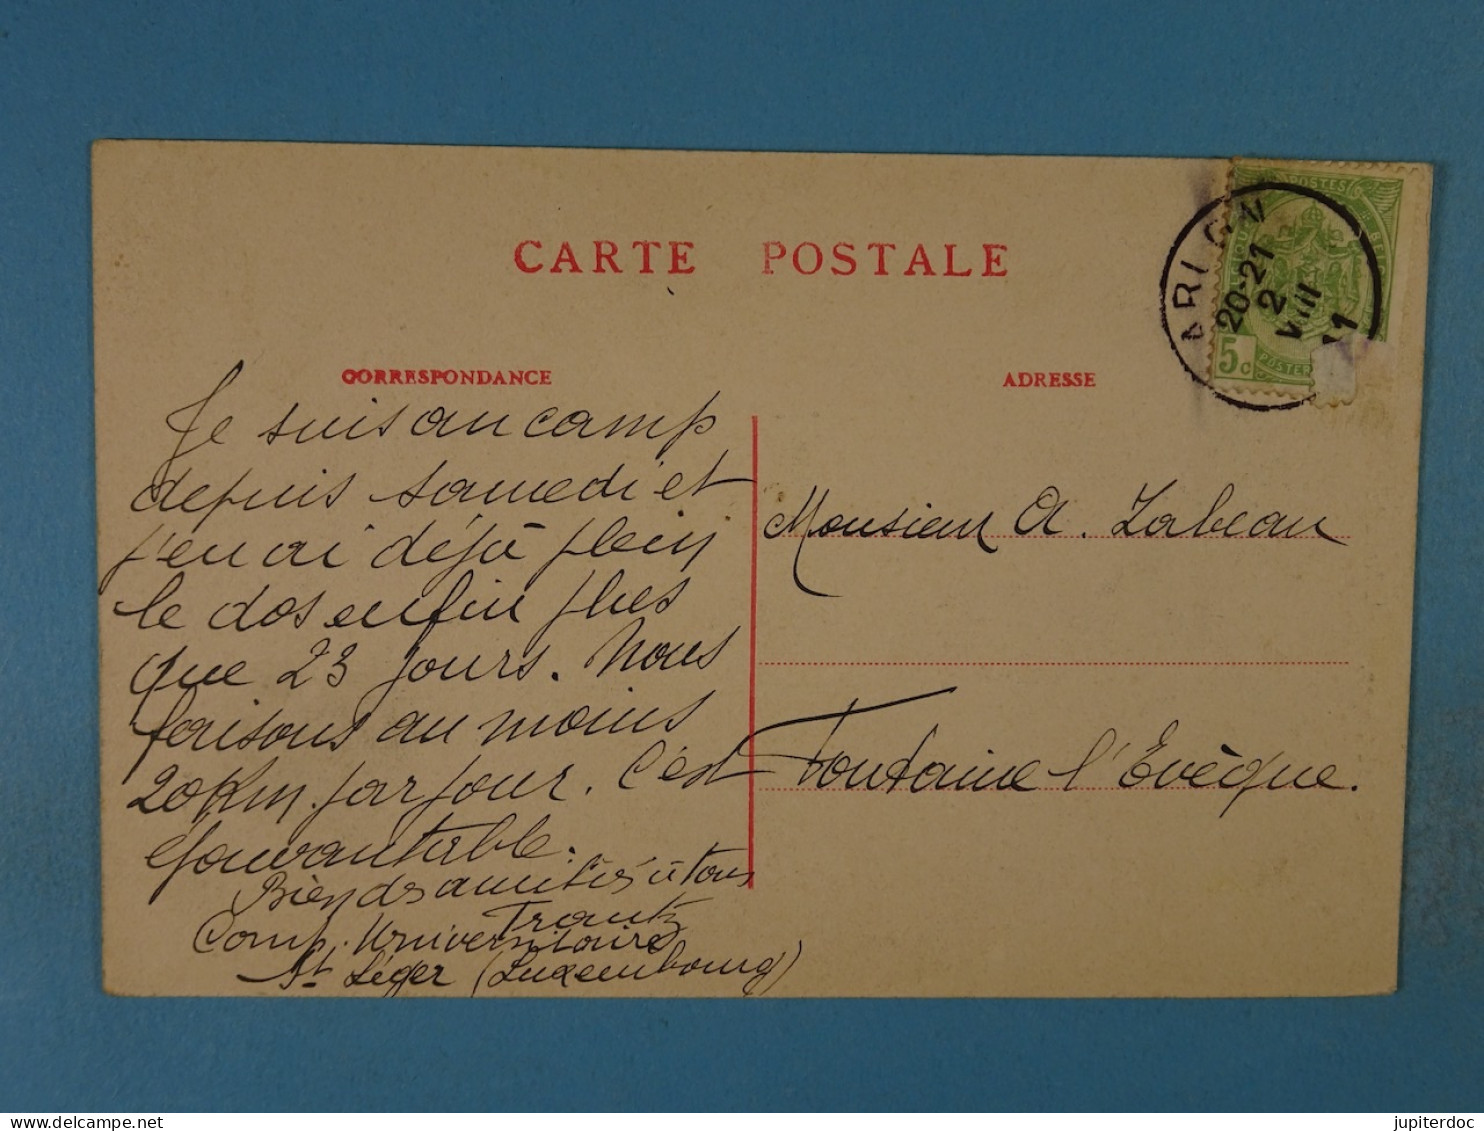 CARTE POSTALE
CORRESPONDANCE
ADRESSE
POSTES
5c
POSTER
ARLON
20-21
2
VIII
11
Je suis au camp
depuis samedi et
j'en ai déjà plein
le dos enfin plus
que 23 jours. Nous
faisons au moins
20 Km. par jour. C'est
épouvantable.
Bien des amitiés à tous
Frantz
Comp. Universitaire
St Léger (Luxembourg)
Monsieur A. Labeau
Fontaine l'Evèque.
jupiterdoc